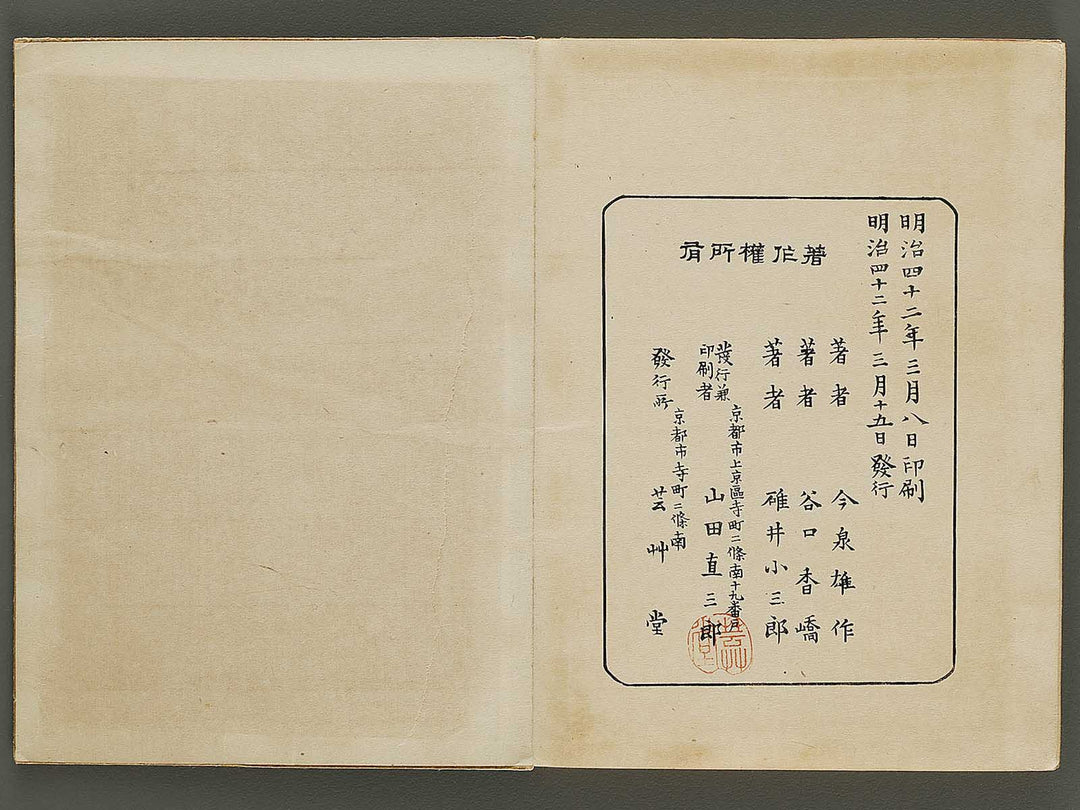 明治四十二年三月八日印刷
明治四十二年三月十五日發行
著作權所有
著者 今泉雄作
著者 谷口香嶠
著者 碓井小三郎
京都市上京區寺町二條南十九番戸
發行兼
印刷者 山田直三郎
京都市寺町二條南
發行所 芸艸堂
芸艸堂